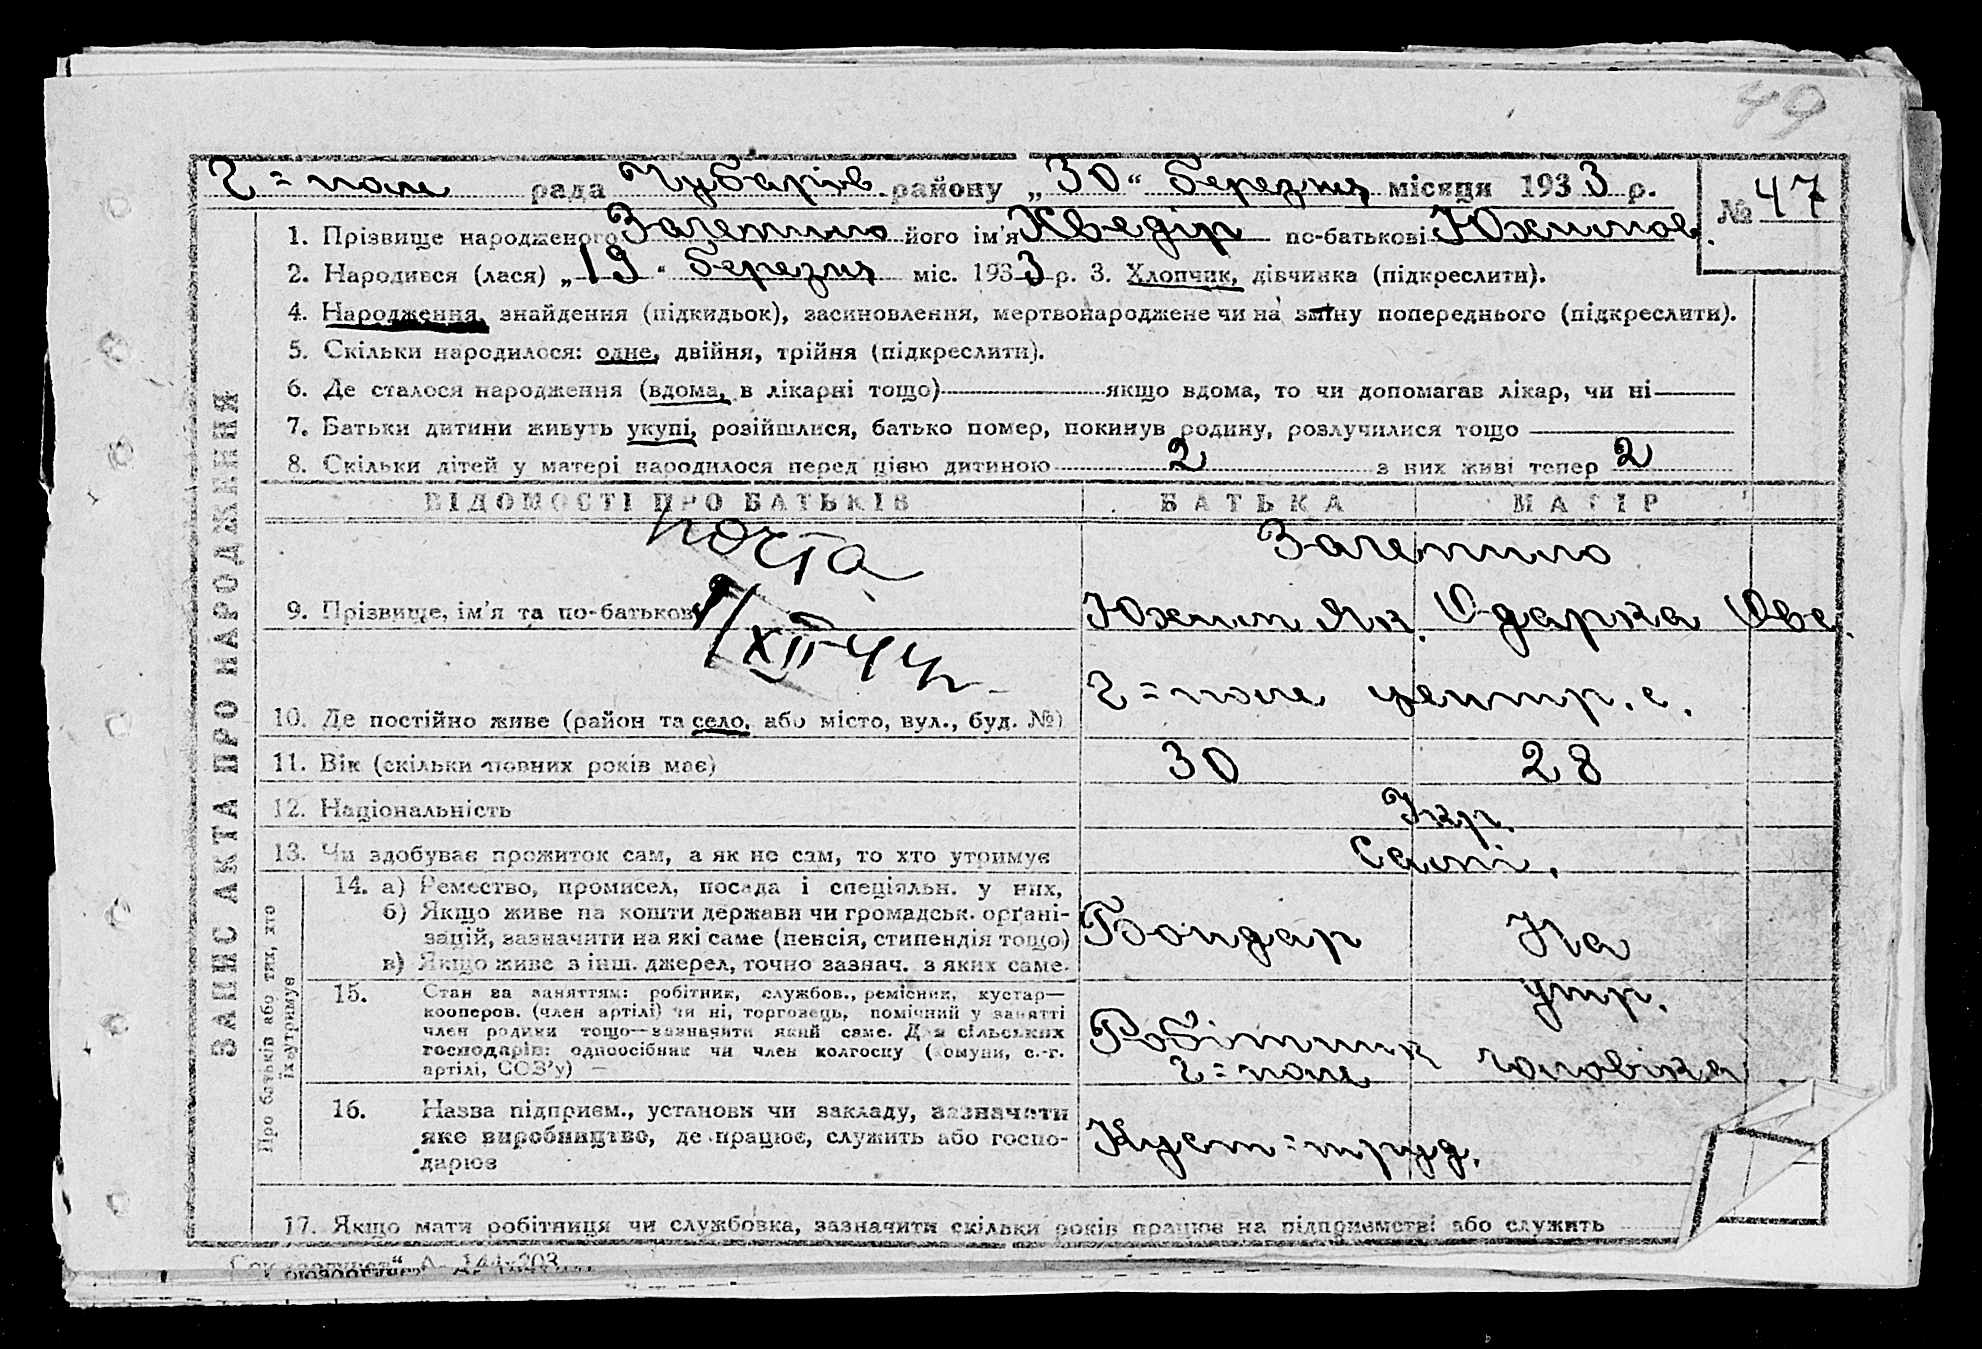 49
Г=поле рада Чубарів району „30“ березня місяця 1933 р.
№ 47
1. Прізвище народженого Загепило його ім'я Хведір по-батькові Юхимов.
2. Народився (лася) „19“ березня міс. 1933 р. 3. Хлопчик, дівчинка (підкреслити).
4. Народження, знайдення (підкидьок), засиновлення, мертвонароджене чи на зміну попереднього (підкреслити).
5. Скільки народилося: одне, двійня, трійня (підкреслити).
6. Де сталося народження (вдома, в лікарні тощо) якщо вдома, то чи допомагав лікар, чи ні
7. Батьки дитини живуть укупі, розійшлися, батько помер, покинув родину, розлучилися тощо
8. Скільки дітей у матері народилося перед цією дитиною 2 з них живі тепер 2
ЗАПИС АКТА ПРО НАРОДЖЕННЯ
ВІДОМОСТІ ПРО БАТЬКІВ БАТЬКА МАТІР
почта
9/XII-44р.
9. Прізвище, ім'я та по-батькові
Загепило
Юхим Як. Одарка Ове.
10. Де постійно живе (район та село, або місто, вул., буд. №)
Г=поле центр. с.
11. Вік (скільки повних років має) 30 28
12. Національність Укр.
13. Чи здобуває прожиток сам, а як не сам, то хто утримує Самі.
Про батьків або тих, хто їх утримує
14. а) Ремество, промисел, посада і спеціяльн. у них,
б) Якщо живе на кошти держави чи громадськ. орґані-
зацій, зазначити на які саме (пенсія, стипендія тощо)
в) Якщо живе з інш. джерел, точно зазнач. з яких саме.
Бондар На
утр.
чоловіка
15. Стан за заняттям: робітник, службов., ремісник, кустар—
кооперов. (член артілі) чи ні, торговець, помічний у занятті
член родини тощо—зазначити який саме. Для сільських
господарів: одноосібник чи член колгоспу (комуни, с.-г.
артілі, СОЗ'у) —
Робітник
Г=поле
16. Назва підприєм., установи чи закладу, зазначити
яке виробництво, де працює, служить або госпо-
дарює
Кует=труд.
17. Якщо мати робітниця чи службовка, зазначити скільки років працює на підприємстві або служить